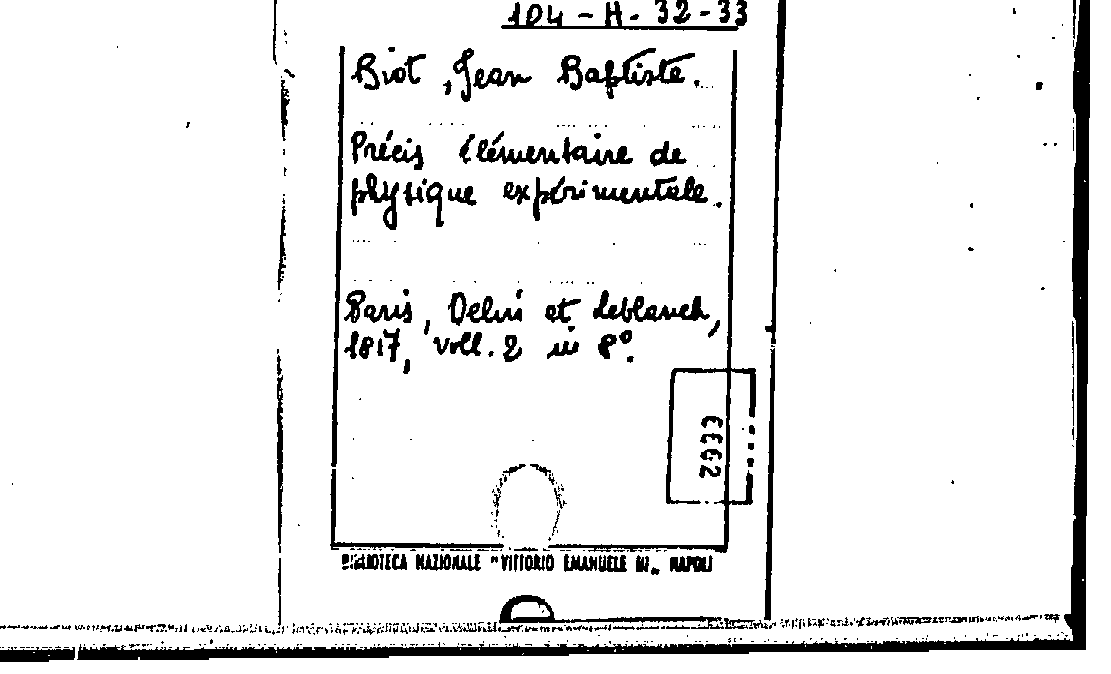 104 - H - 32 - 33
Biot, Jean Baptiste.
Précis élémentaire de
physique expérimentale.
Paris, et
1817, voll. 2 in 8°.
BIBLIOTECA NAZIONALE "VITTORIO EMANUELE III„ NAPOLI